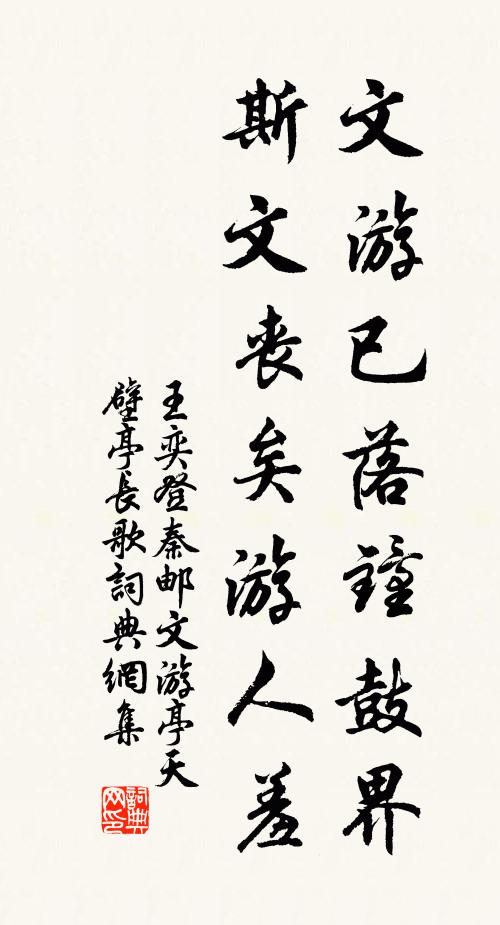 文游已落鐘鼓界
斯文丧矣游人羞
王奕登秦邮文游亭天
壁亭長歌詞典網集
詞典
网印